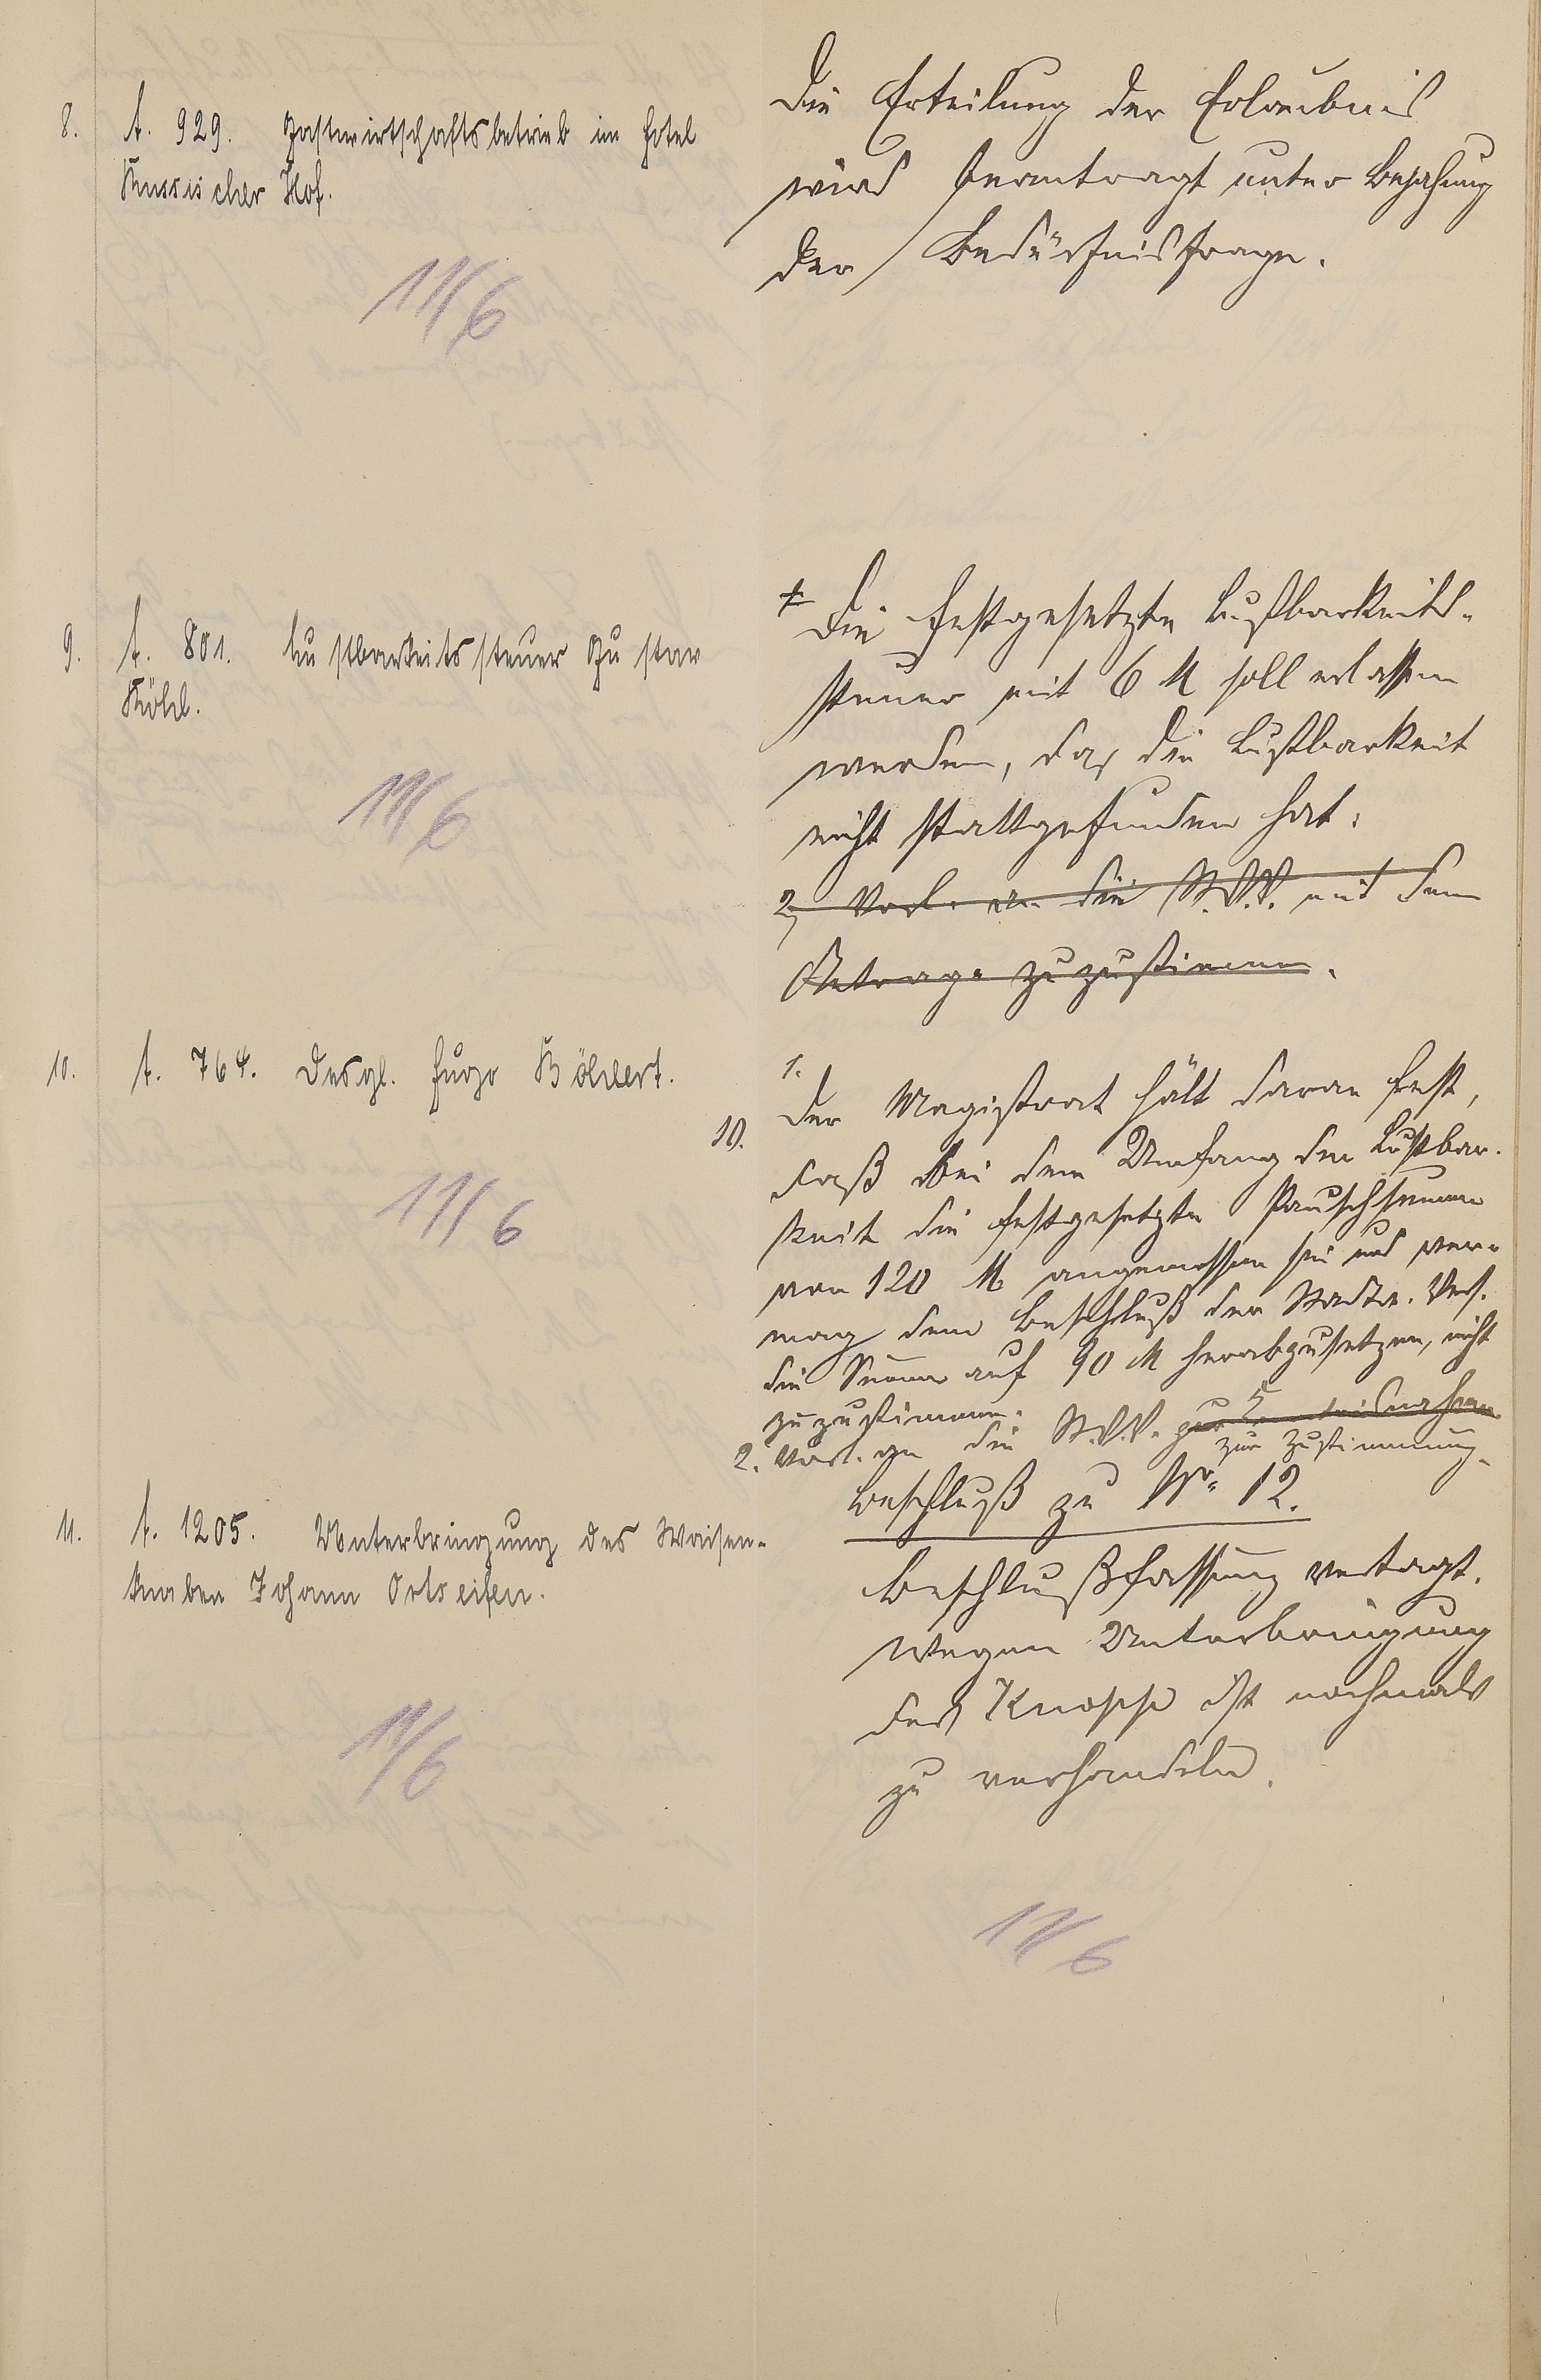 8. A. 929. Gastwirtschaftsbetrieb im Hotel
Russischer Hof.
11/6
Die Erteilung der Erlaubnis
wird beantragt unter Bejahung
der Bedürfnisfrage.
9. A. 801. Lustbarkeitssteuer Gustav
Köhl.
11/6
Die festgesetzte Lustbarkeits-
steuer mit 6 M soll erlassen
werden, da die Lustbarkeit
nicht stattgefunden hat.
2, Vorl. an die St.V.V. mit dem
Antrage zuzustimmen.
10. A. 764. Desgl. Hugo Böldert.
11/6
1.
10. Der Magistrat hält daran fest,
daß bei dem Umfang der Lustbar-
keit die festgesetzte Pauschsumme
von 120 M angemessen sei und ver-
mag dem Beschluß der Stadtv. Vers.
die Summe auf 90 M herabzusetzen, nicht
zuzustimmen.
2. Vorl. an die St.V.V. zur Kenntnisnahme
zur Zustimmung.
Beschluß zu No. 12.
11. A. 1205. Unterbringung des Waisen-
knaben Johann Ortseifen.
11/6
Beschlußfassung vertagt.
Wegen Unterbringung
des Knopp ist nochmals
zu verhandeln.
11/6